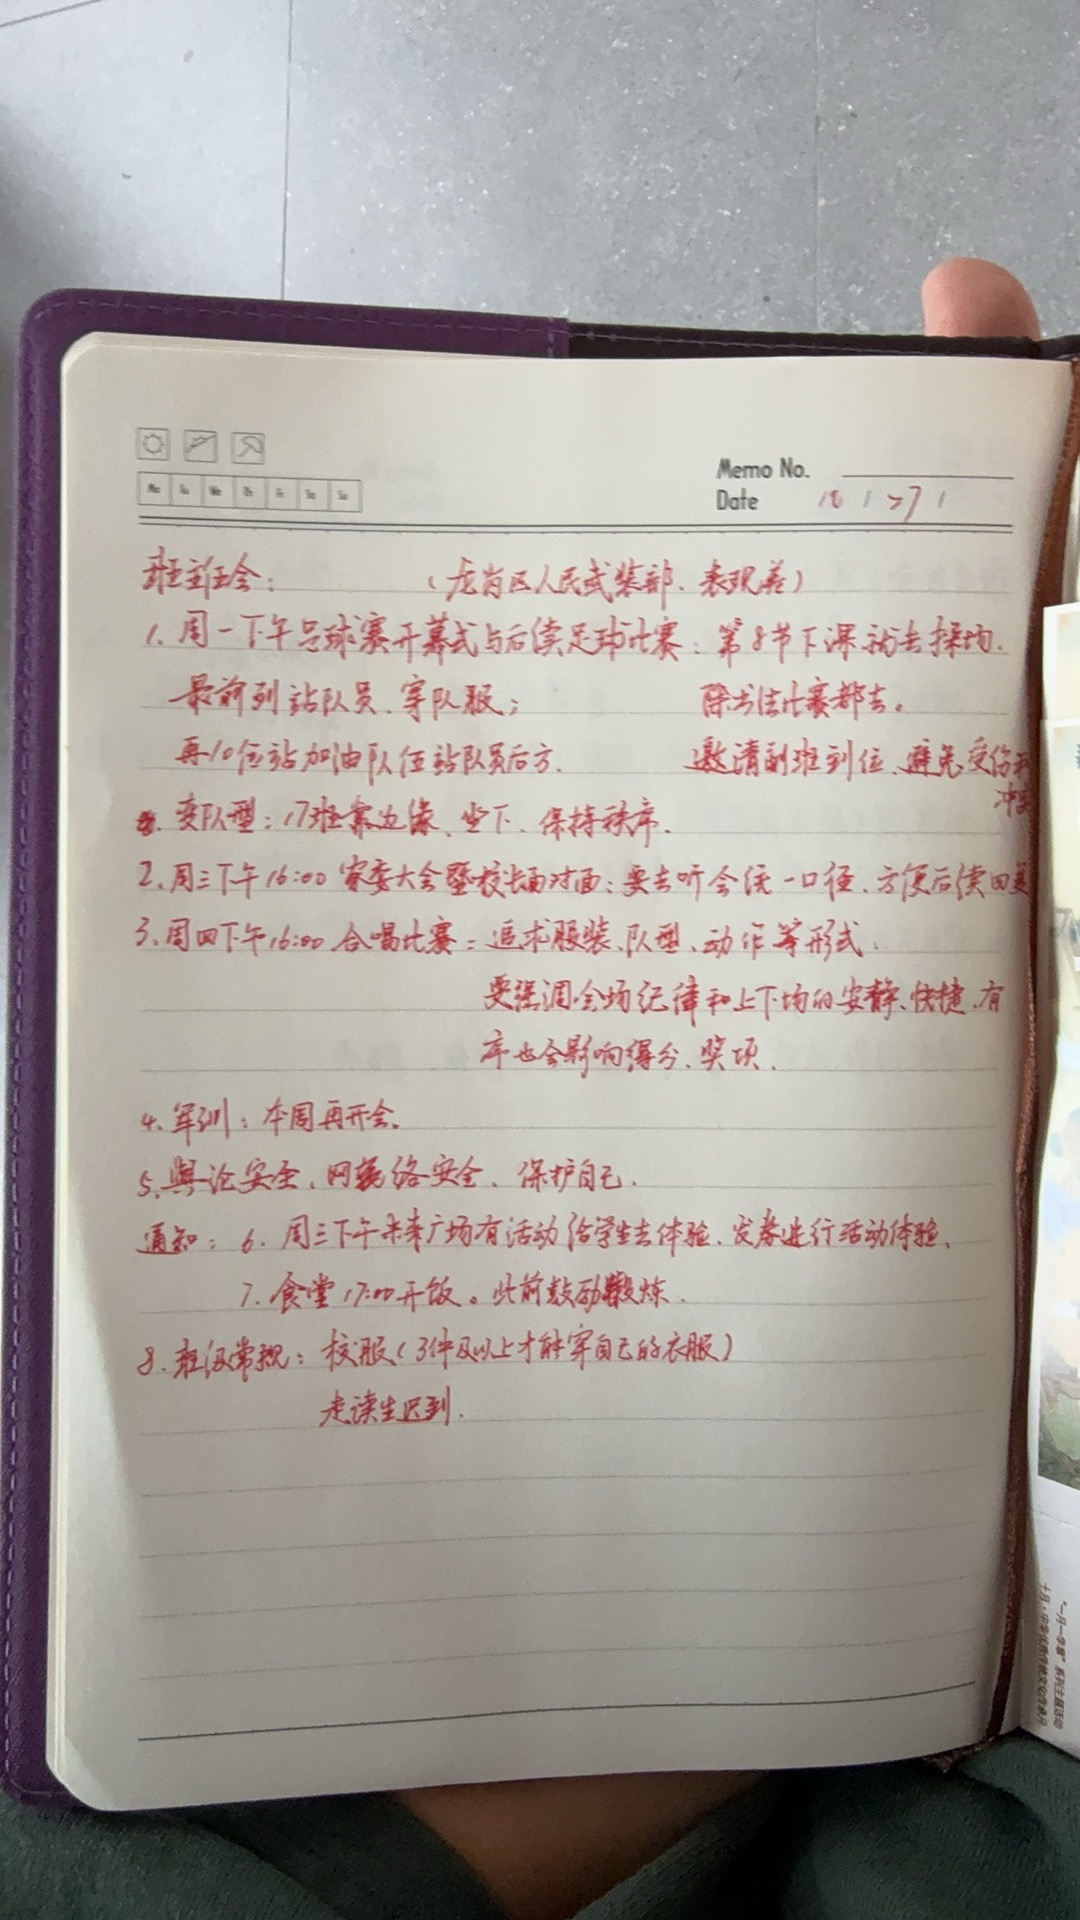 Mo Tu We Th Fr Sa Su
Memo No.
Date 10 / 27 /
班主任会: (龙岗区人民武装部、表现差)
1. 周一下午足球赛开幕式与后续足球比赛: 第8节下课就去操场.
最前列站队员、穿队服; 除书法比赛都去。
再10位站加油队伍站队员后方. 邀请副班到位、避免受伤和
冲突
变队型: 17班靠边缘、坐下、保持秩序.
2. 周三下午16:00 家委大会暨校长面对面: 要去听会统一口径、方便后续回复
3. 周四下午16:00 合唱比赛: 追求服装、队型、动作等形式.
要强调会场纪律和上下场的安静、快捷、有
序也会影响得分、奖项.
4. 军训: 本周再开会.
5. 舆论安全、网络安全、保护自己.
通知: 6. 周三下午未来广场有活动给学生去体验、发券进行活动体验.
7. 食堂17:00开饭。此前鼓励锻炼.
8. 班级常规: 校服(3件及以上才能穿自己的衣服)
走读生迟到.
"一月一步看"系列主题活动